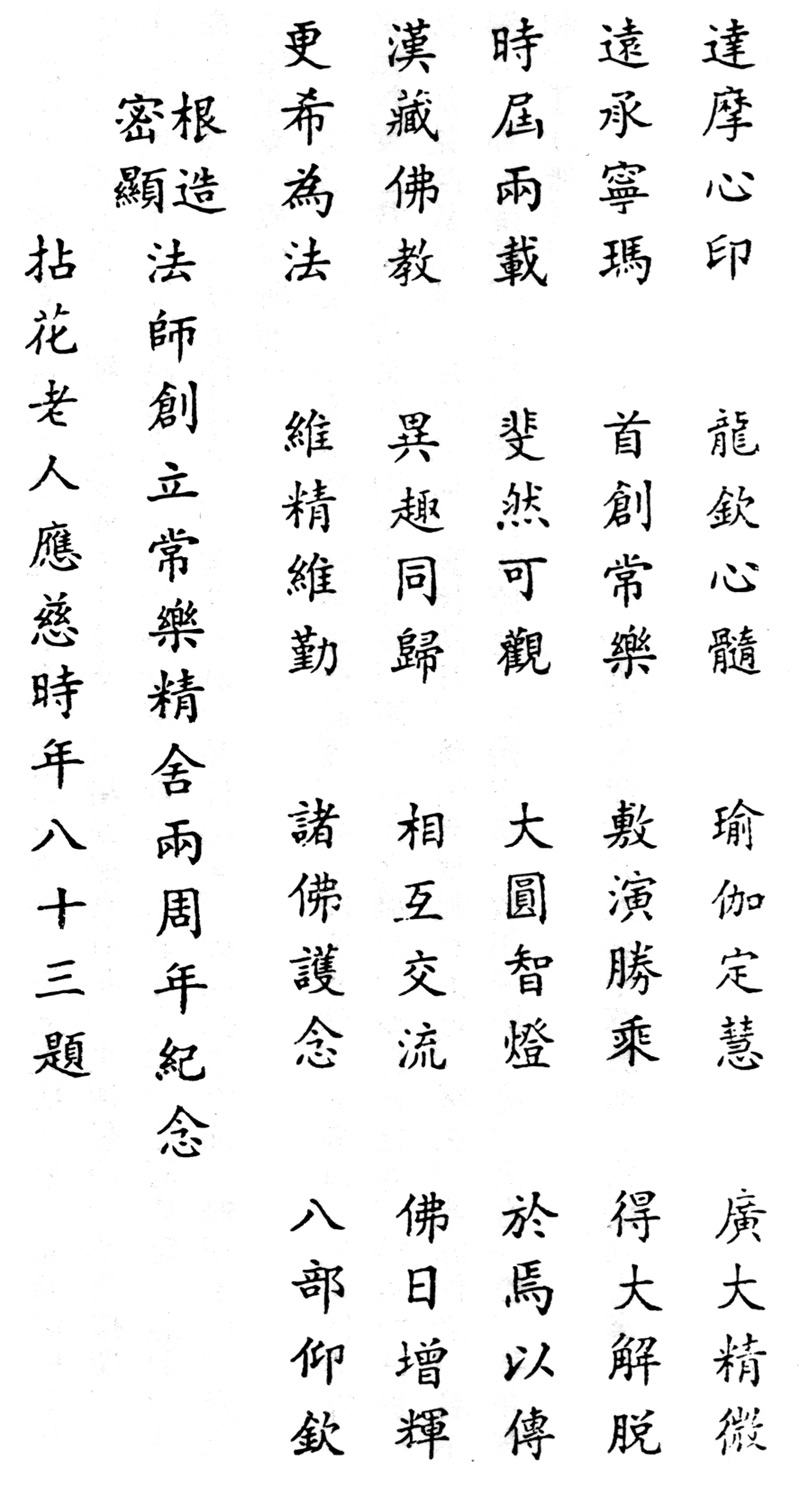 達摩心印 龍欽心髓 瑜伽定慧 廣大精微
遠承寧瑪 首創常樂 敷演勝乘 得大解脫
時屆兩載 斐然可觀 大圓智燈 於焉以傳
漢藏佛教 異趣同歸 相互交流 佛日增輝
更希為法 維精維勤 諸佛護念 八部仰欽
根造密顯法師創立常樂精舍兩周年紀念
拈花老人應慈時年八十三題